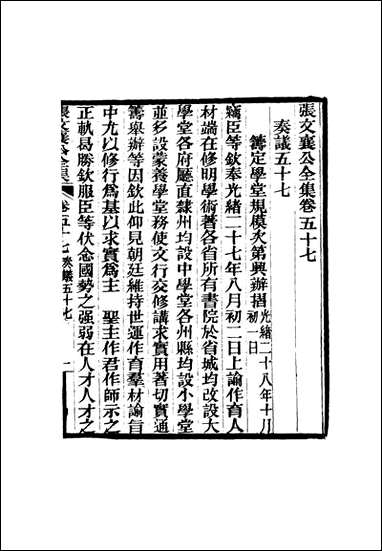 張文襄公全集卷五十七
奏議五十七
籌定學堂規模次第興辦摺光緒二十八年十月初一日
竊臣等欽奉光緒二十七年八月初二日上諭作育人
材端在修明學術著各省所有書院於省城均改設大
學堂各府廳直隸州均設中學堂各州縣均設小學堂
並多設蒙養學堂務使文行交修講求實用著切實通
籌舉辦等因欽此仰見朝廷維持世運作育羣材諭旨
中尤以修行爲基以求實爲主 聖主作君作師示之
正軌曷勝欽服臣等伏念國勢之强弱在人才人才之
張文襄公全集 卷五十七 奏議五十七 一